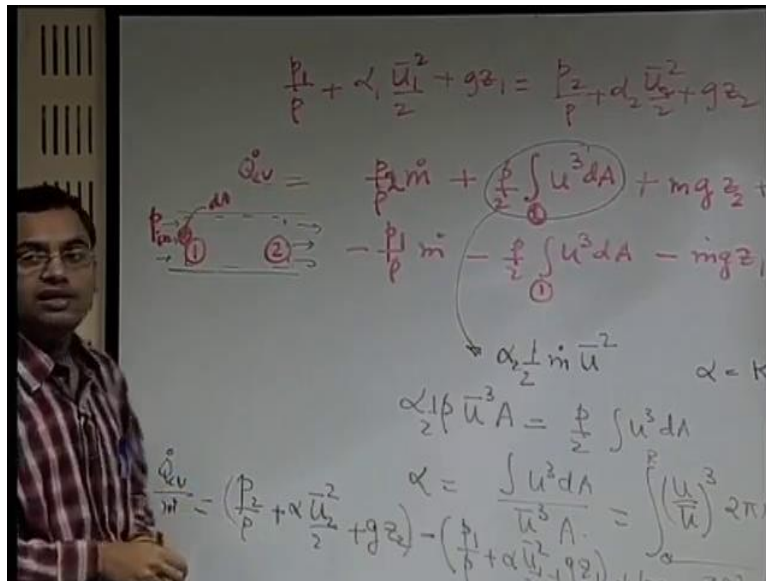 p₁/ρ + α₁ ū₁²/2 + gz₁ = p₂/ρ + α₂ ū₂²/2 + gz₂
Q̇cv = p₂/ρ ṁ + ρ/2 ∫② u³dA + mg z₂ +
dA
① ② - p₁/ρ ṁ - ρ/2 ∫① u³dA - ṁgz₁
α₂ 1/2 ṁ ū²
α = K
α 1/2 ρ ū³A = ρ/2 ∫ u³dA
α = ∫u³dA / ū³A = ∫₀ᴿ (u/ū)³ 2π
Q̇cv/ṁ = (p₂/ρ + α ū₂²/2 + gz₂) - (p₁/ρ + α ū₁²/2 + gz₁)